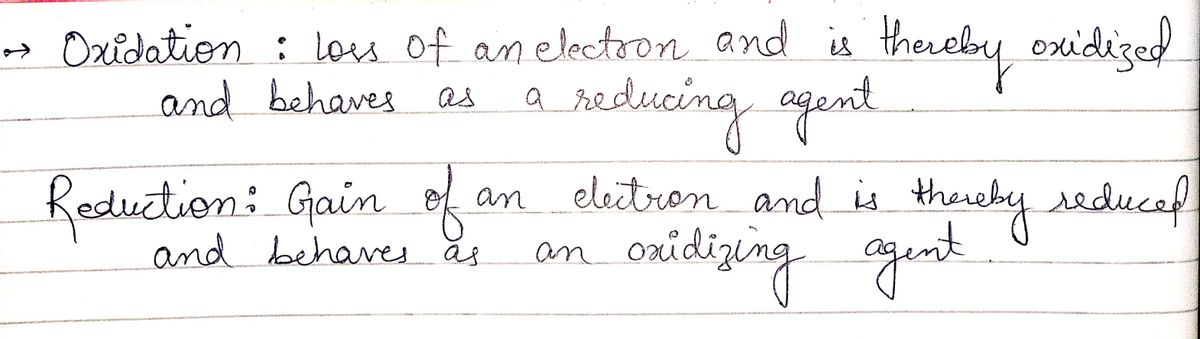 → Oxidation : loss of an electron and is thereby oxidized
and behaves as a reducing agent.
Reduction: Gain of an electron and is thereby reduced
and behaves as an oxidizing agent.